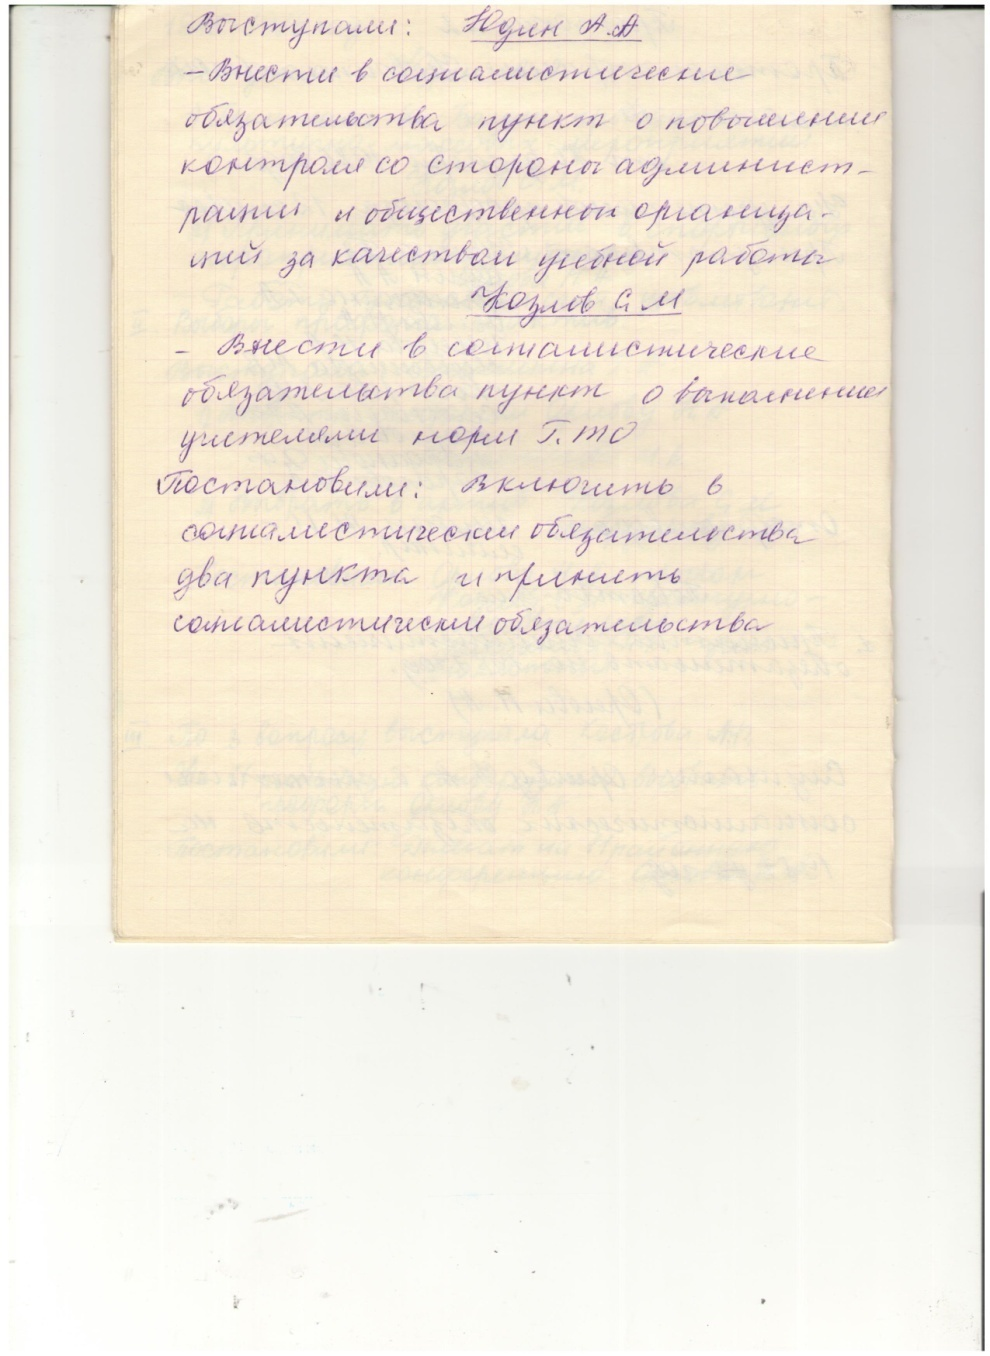 Выступали: Юдин А.А
– Внести в социалистические
обязательства пункт о повышении
контроля со стороны админист-
рации и общественных организа-
ций за качеством учебной работы
Козлов С М
– Внести в социалистические
обязательства пункт о выполнении
учителями норм Г.ТО
Постановили: Включить в
социалистические обязательства
два пункта и принять
социалистические обязательства